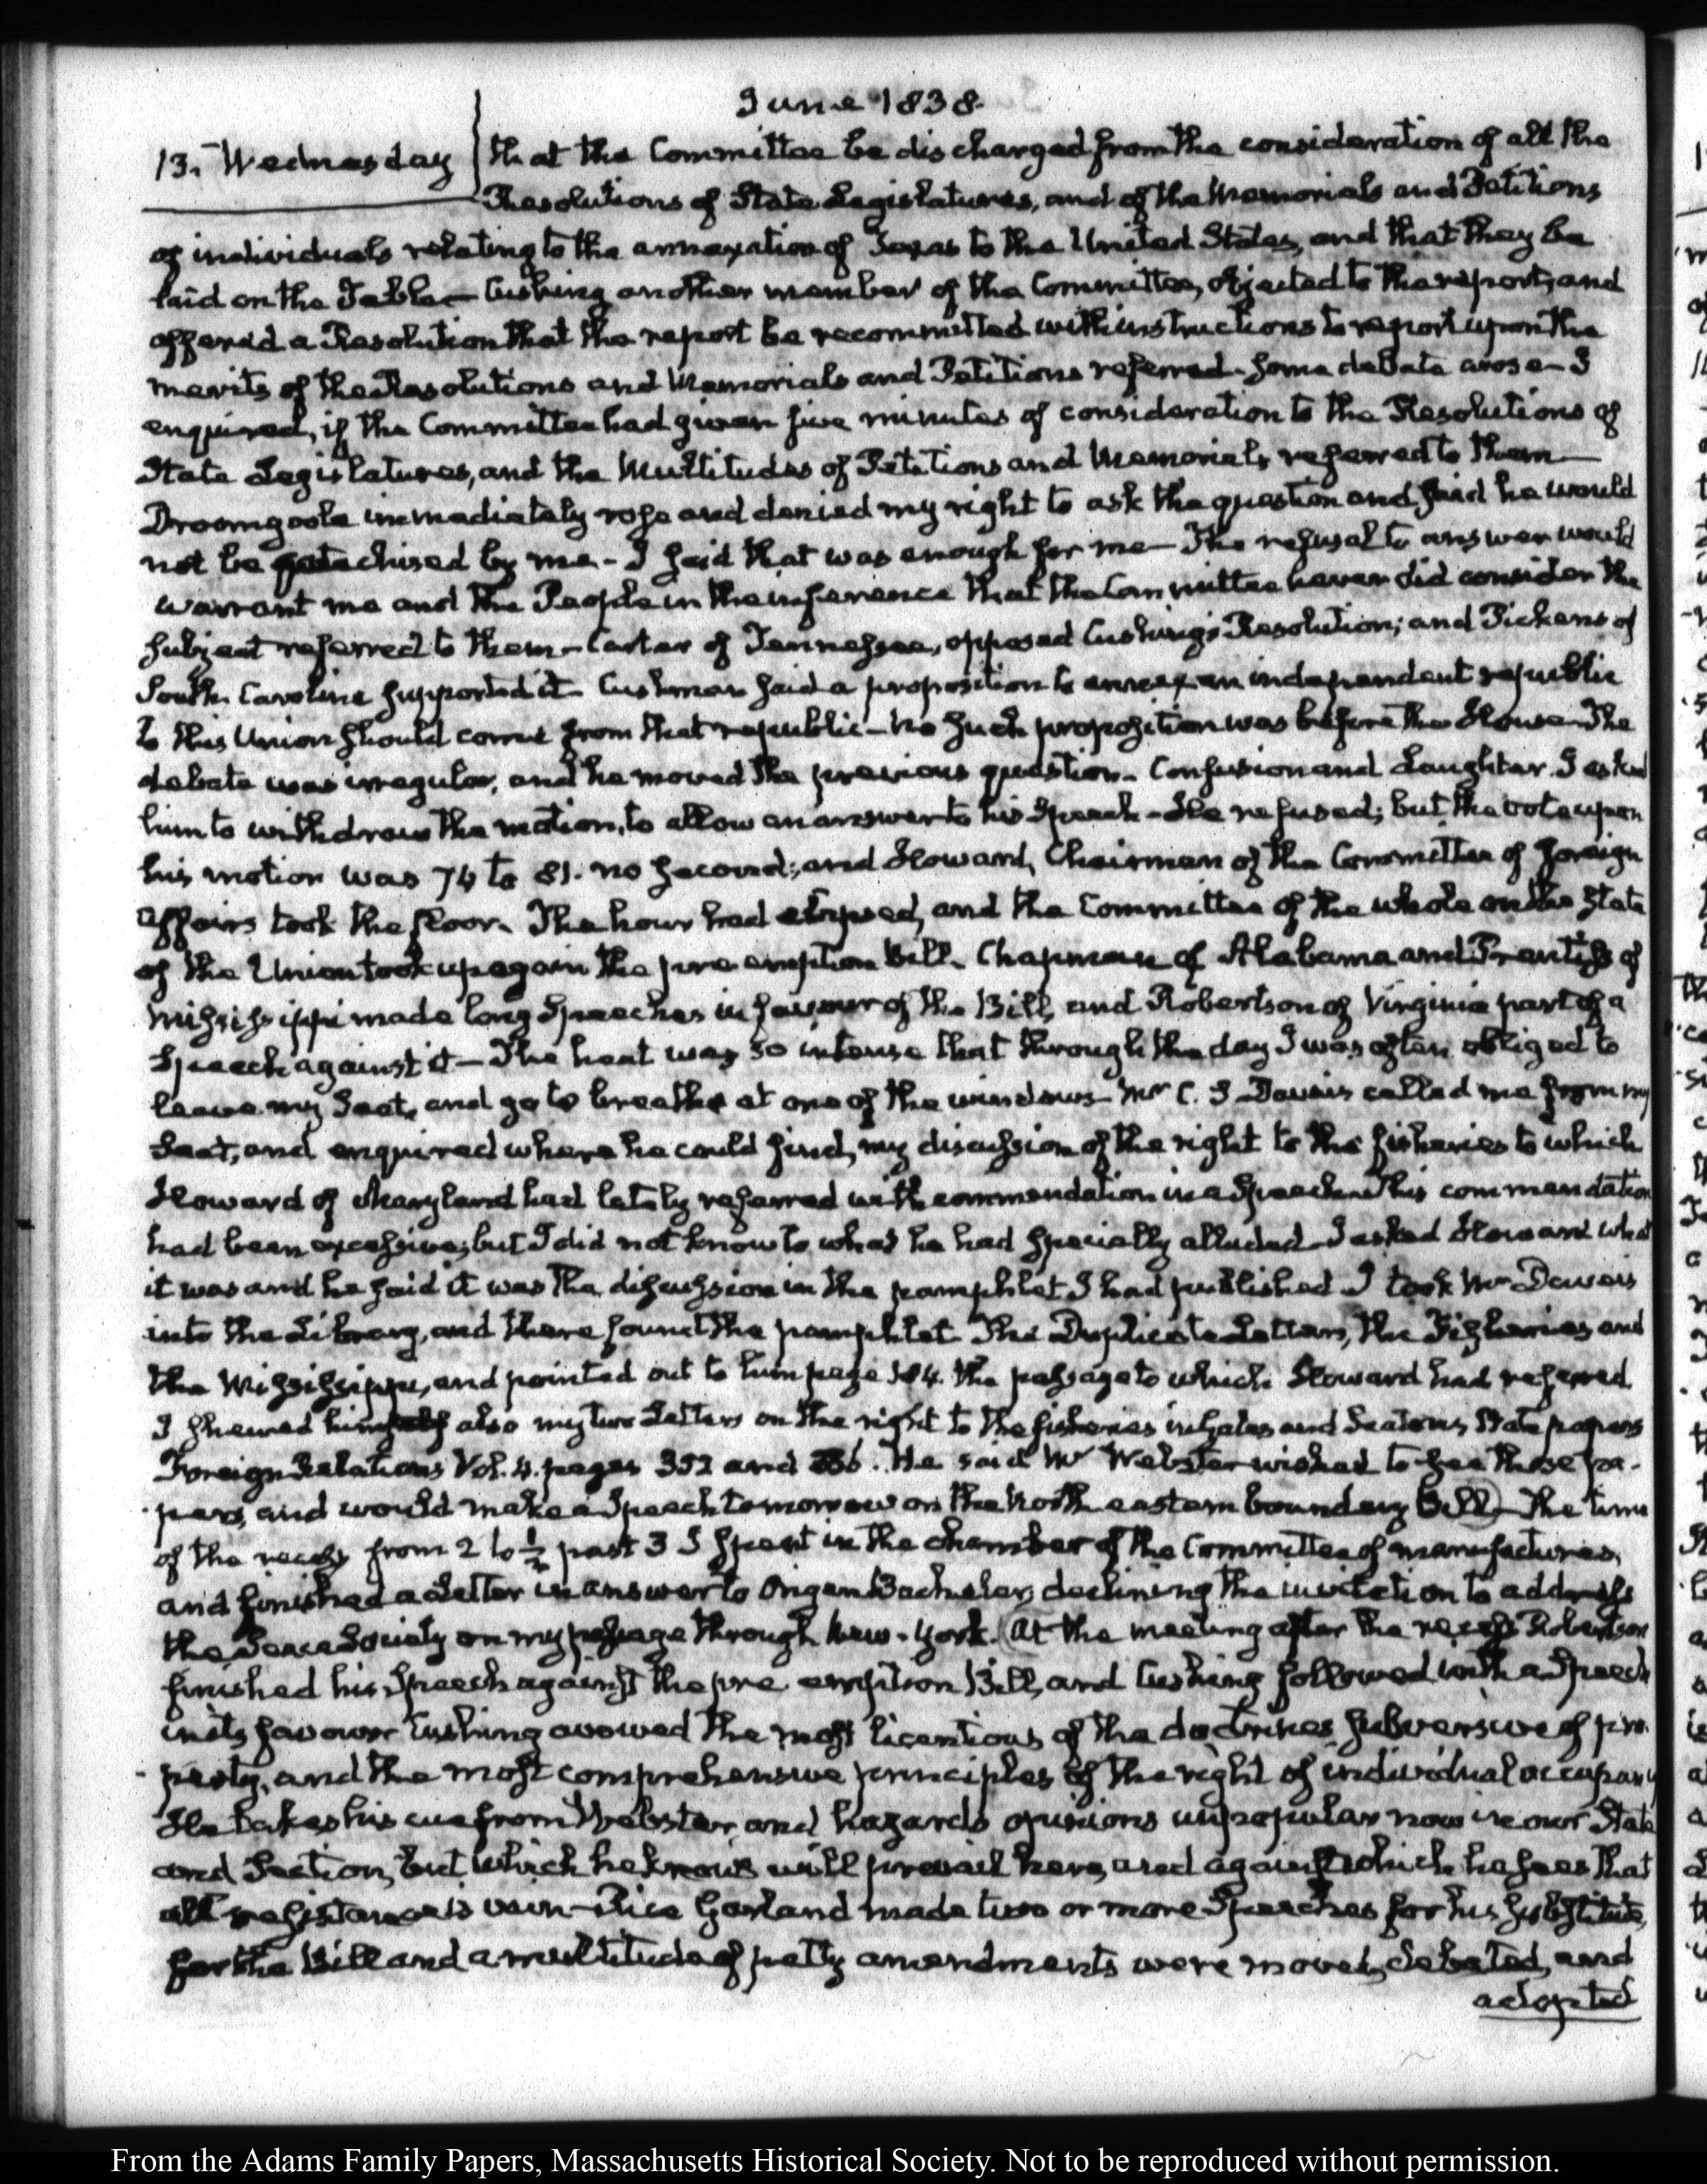 June 1838.
13. Wednesday
that the Committee be discharged from the consideration of all the
Resolutions of State Legislatures, and of the Memorials and Petitions
of individuals relating to the annexation of Texas to the United States, and that they be
laid on the Table— Cushing another member of the Committee, objected to the report, and
offered a Resolution that the report be recommitted with instructions to report upon the
merits of the Resolutions and Memorials and Petitions referred. Some debate arose— I
enquired, if the Committee had given five minutes of consideration to the Resolutions of
State Legislatures, and the Multitudes of Petitions and Memorials referred to them—
Dromgoole immediately rose and denied my right to ask the question and said he would
not be catechised by me— I said that was enough for me— The refusal to answer would
warrant me and the People in the inference that the Committee never did consider the
subject referred to them— Carter of Tennessee, opposed Cushing's Resolution; and Pickens of
South Carolina supported it— Cushman said a proposition to annex an independent republic
to this Union should come from that republic— No such proposition was before the House— The
debate was irregular, and he moved the previous question. Confusion and Laughter. I asked
him to withdraw the motion, to allow an answer to his Speech— He refused; but the vote upon
his motion was 74 to 81. no second; and Howard, Chairman of the Committee of foreign
affairs took the floor. The hour had elapsed, and the Committee of the whole on the State
of the Union took up again the pre emption Bill. Chapman of Alabama and Prentiss of
Mississippi made long Speeches in favour of the Bill, and Robertson of Virginia part of a
Speech against it— The heat was so intense that through the day I was often obliged to
leave my Seat, and go to breathe at one of the windows— Mr C. S. Daveis called me from my
Seat, and enquired where he could find, my discussion of the right to the fisheries to which
Howard of Maryland had lately referred with commendation in a Speech. This commendation
had been excessive, but I did not know to what he had specially alluded— I asked Howard what
it was and he said it was the discussion in the pamphlet I had published. I took Mr Daveis
into the Library, and there found the pamphlet The Duplicate Letters, the Fisheries and
the Mississippi, and pointed out to him page 184. the passage to which Howard had referred.
I shewed him also my two Letters on the right to the fisheries in Gales and Seatons State papers
Foreign Relations Vol. 4. pages 352 and. He said Mr Webster wished to see those pa-
pers, and would make a Speech tomorrow on the North eastern boundary Bill— The time
of the recess from 2 to ½ past 3 I spent in the chamber of the Committee of manufactures,
and finished a Letter in answer to Origen Bacheler, declining the invitation to address
the Peace Society on my passage through New-York. At the meeting after the recess Robertson
finished his Speech against the pre emption Bill, and Cushing followed with a Speech
in its favour Cushing avowed the most licentious of the doctrines subversive of pro-
perty, and the most comprehensive principles of the right of individual occupancy
He takes his cue from Webster, and hazards opinions unpopular now in our State
and Section, but which he knows will prevail here, and against which he sees that
all resistance is vain— Rice Garland made two or more Speeches for his substitute,
for the Bill and a multitude of petty amendments were moved, debated, and
adopted
From the Adams Family Papers, Massachusetts Historical Society. Not to be reproduced without permission.